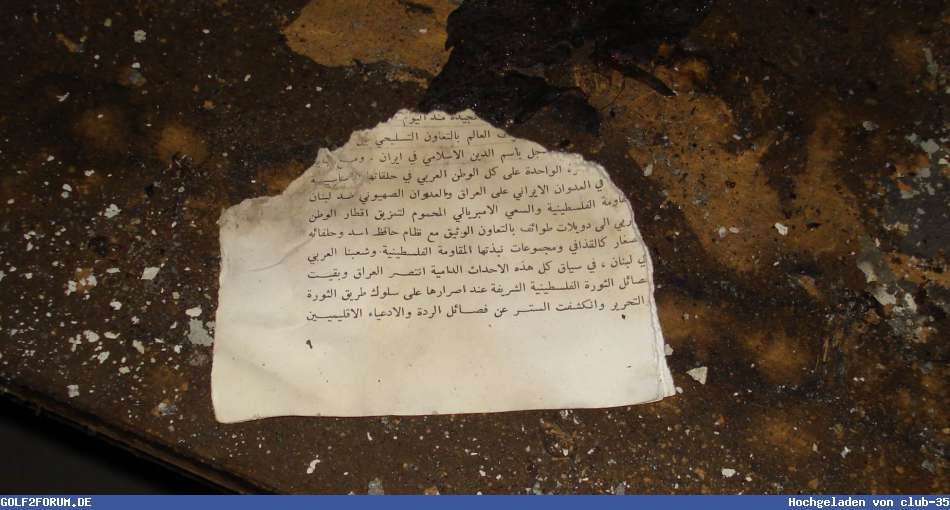 منذ اليوم
العالم بالتعاون التسليحي
باسم الدين الاسلامي في ايران . ومن
الواحدة على كل الوطن العربي في حلقاتها
في العدوان الايراني على العراق والعدوان الصهيوني ضد لبنان
الفلسطينية والسعي الامبريالي المحموم لتمزيق اقطار الوطن
الى دويلات طوائف بالتعاون الوثيق مع نظام حافظ اسد وحلفائه
كالقذافي ومجموعات نبذتها المقاومة الفلسطينية وشعبنا العربي
لبنان ، في سياق كل هذه الاحداث الدامية انتصر العراق وبقيت
الثورة الفلسطينية الشريفة عند اصرارها على سلوك طريق الثورة
التحرير وانكشفت الستر عن فصائل الردة والادعياء الاقليميين
٩
GOLF2FORUM.DE
Hochgeladen von club-35